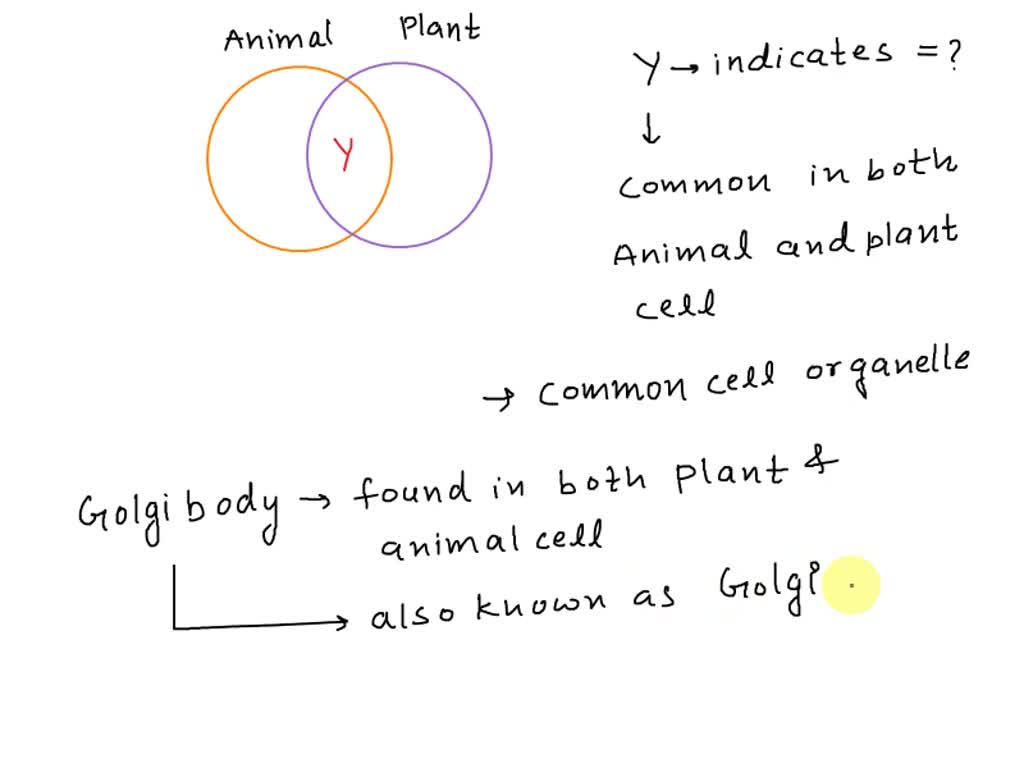 Animal Plant
Y → indicates = ?
Y
↓
Common in both
Animal and plant
cell
→ Common cell organelle
Golgi body → found in both plant &
animal cell
also known as Golgi